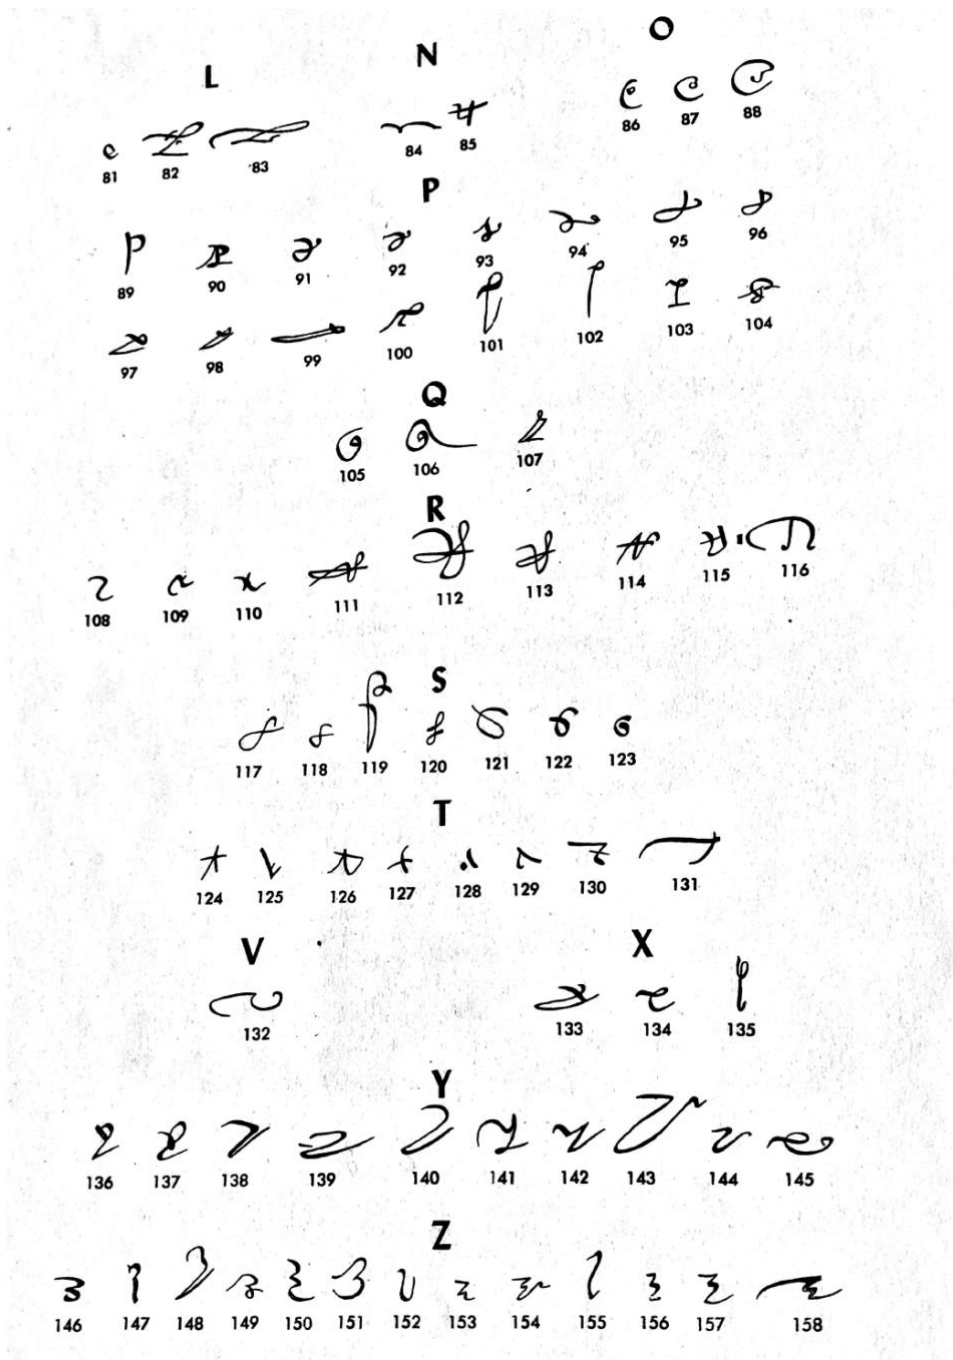 O
N
L
86 87 88
84 85
81 82 83
P
89 90 91 92 93 94 95 96
97 98 99 100 101 102 103 104
Q
105 106 107
R
108 109 110 111 112 113 114 115 116
S
117 118 119 120 121 122 123
T
124 125 126 127 128 129 130 131
V X
132 133 134 135
Y
136 137 138 139 140 141 142 143 144 145
Z
146 147 148 149 150 151 152 153 154 155 156 157 158